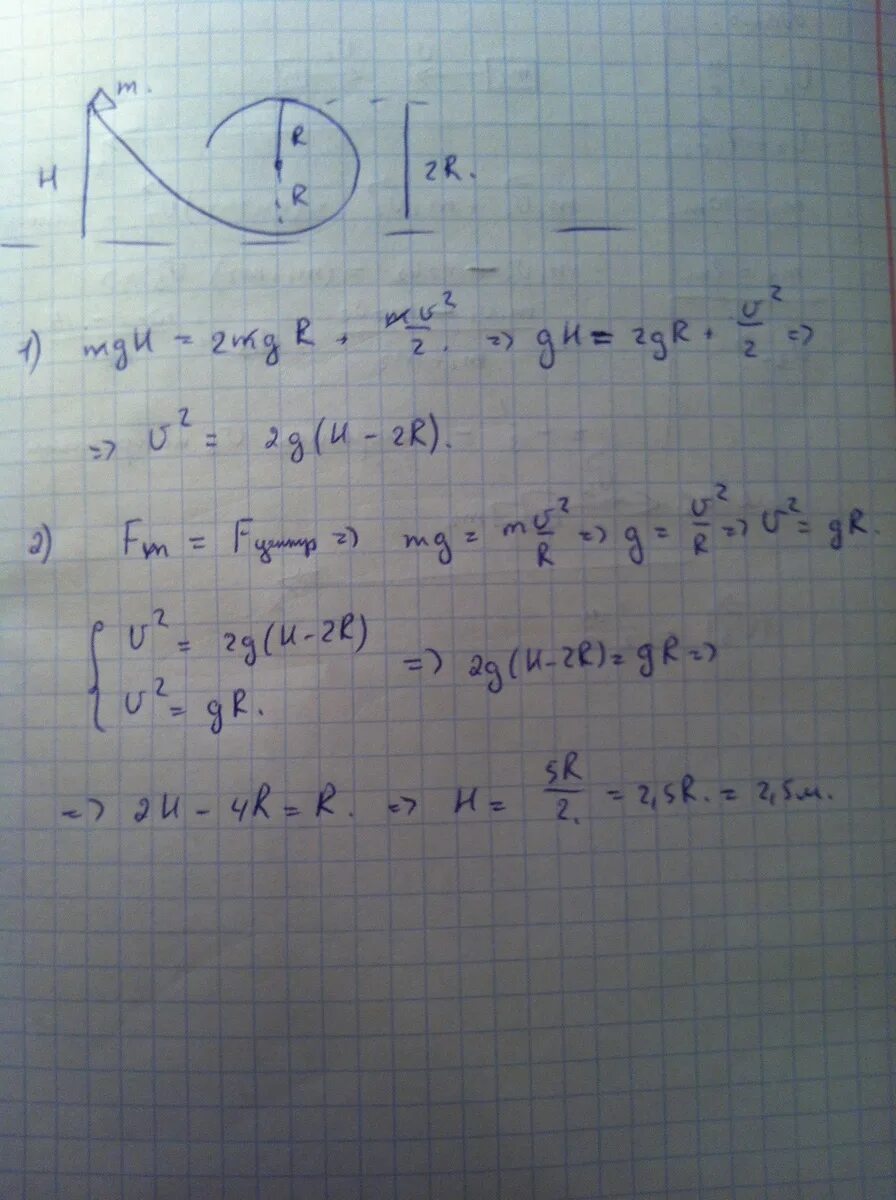 m.
R
H
2R.
R
1) mgH = 2mgR + mv²/2. => gH = 2gR + v²/2 =>
=> v² = 2g(H - 2R).
2) Fт = Fцентр => mg = m v²/R => g = v²/R => v² = gR.
{ v² = 2g(H-2R) => 2g(H-2R) = gR =>
v² = gR.
=> 2H - 4R = R. => H = 5R/2. = 2,5R. = 2,5м.